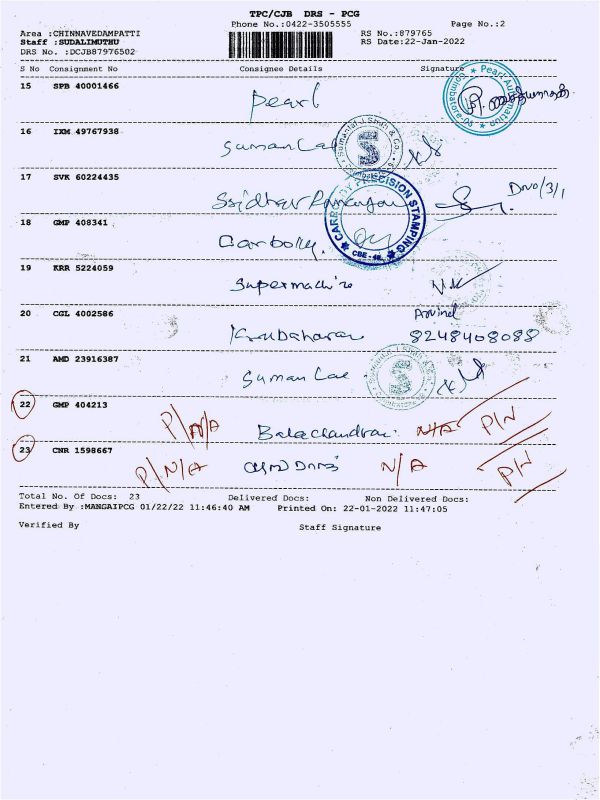 TPC/CJB DRS - PCG
Phone No.:0422-3505555
Page No.:2
Area :CHINNAVEDAMPATTI
Staff :SUDALIMUTHU
DRS No. :DCJB87976502
RS No.:879765
RS Date:22-Jan-2022
S No Consignment No Consignee Details Signature
15 SPB 40001466
Pearl
Pearl Automation
Coimbatore
16 IXM 49767938
Suman Lal
S
17 SVK 60224435
Ssidhar
CARBORY PRECISION STAMPING
CBE - 48.
18 GMP 408341
Carbory
19 KRR 5224059
Supermachine
20 CGL 4002586
Arvind
Kirubaharan 8248408088
21 AMD 23916387
Suman Lal
S
22 GMP 404213
P/N/A Balachandran N/A P/N
23 CNR 1598667
P/N/A N/A P/N
Total No. Of Docs: 23 Delivered Docs: Non Delivered Docs:
Entered By :MANGAIPCG 01/22/22 11:46:40 AM Printed On: 22-01-2022 11:47:05
Verified By Staff Signature